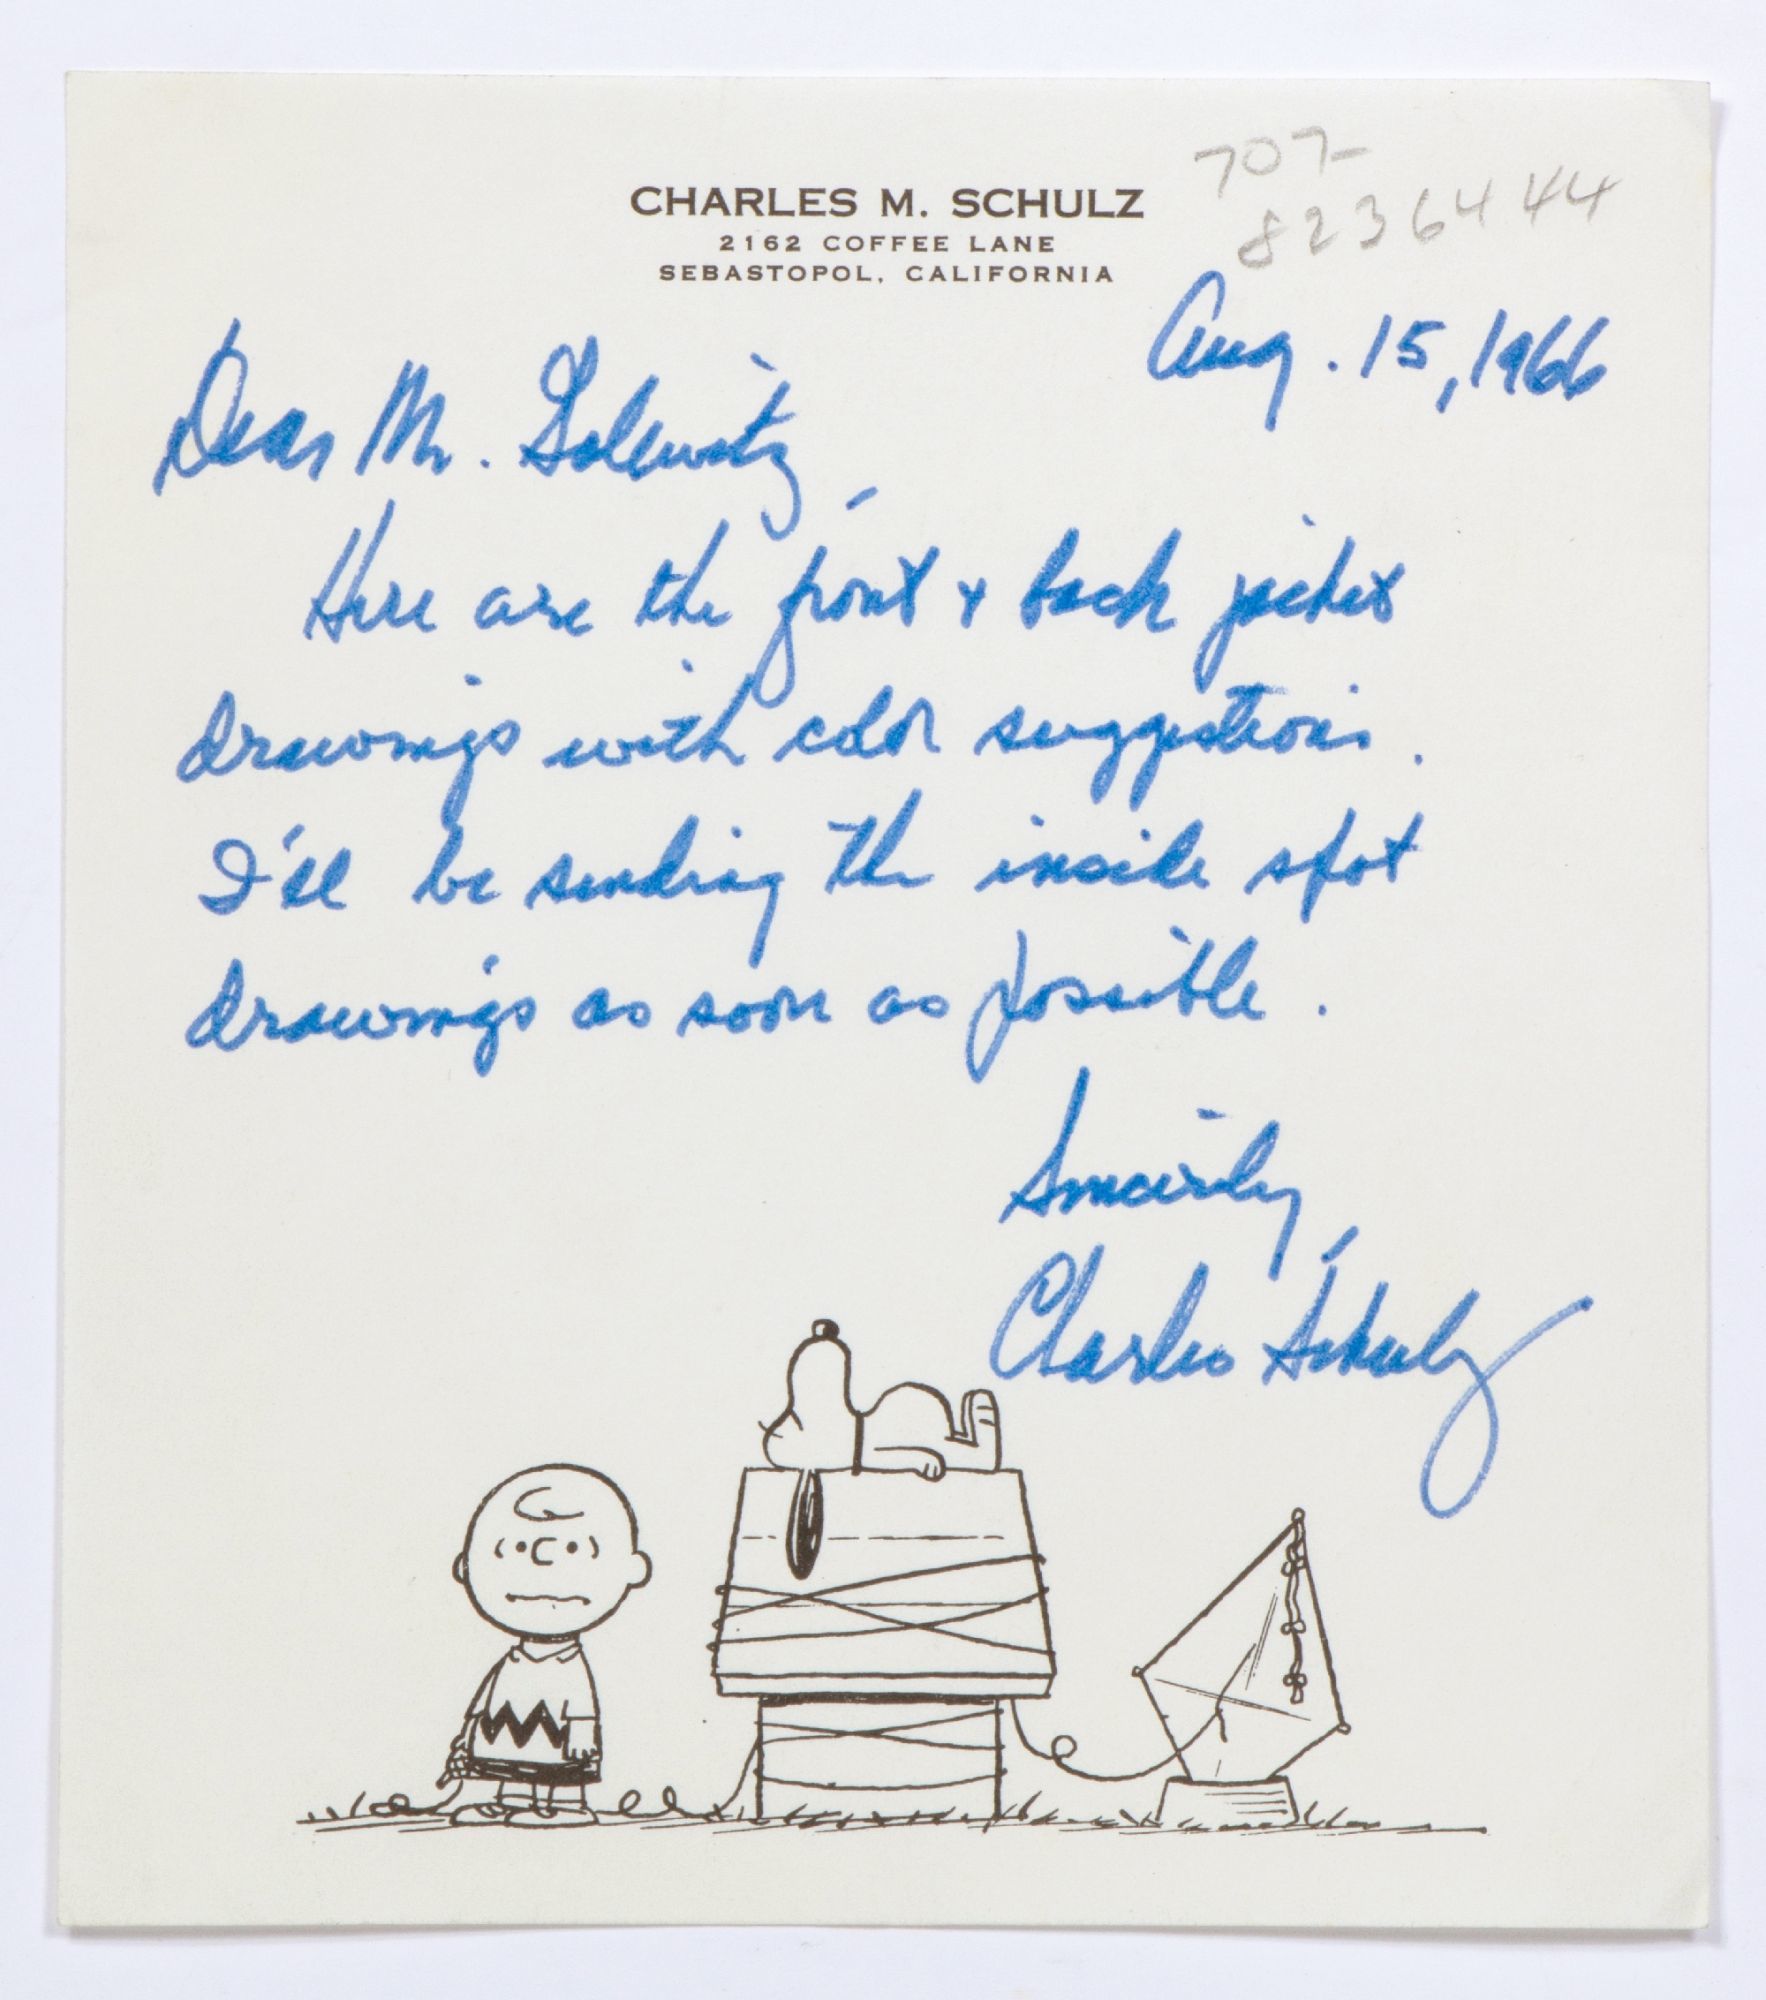 CHARLES M. SCHULZ
2162 COFFEE LANE
SEBASTOPOL, CALIFORNIA
707-
8236444
Aug. 15, 1966
Dear Mr. Golewitz,
Here are the front + back jacket
drawings with color suggestions.
I'll be sending the inside spot
drawings as soon as possible.
Sincerely,
Charles Schulz